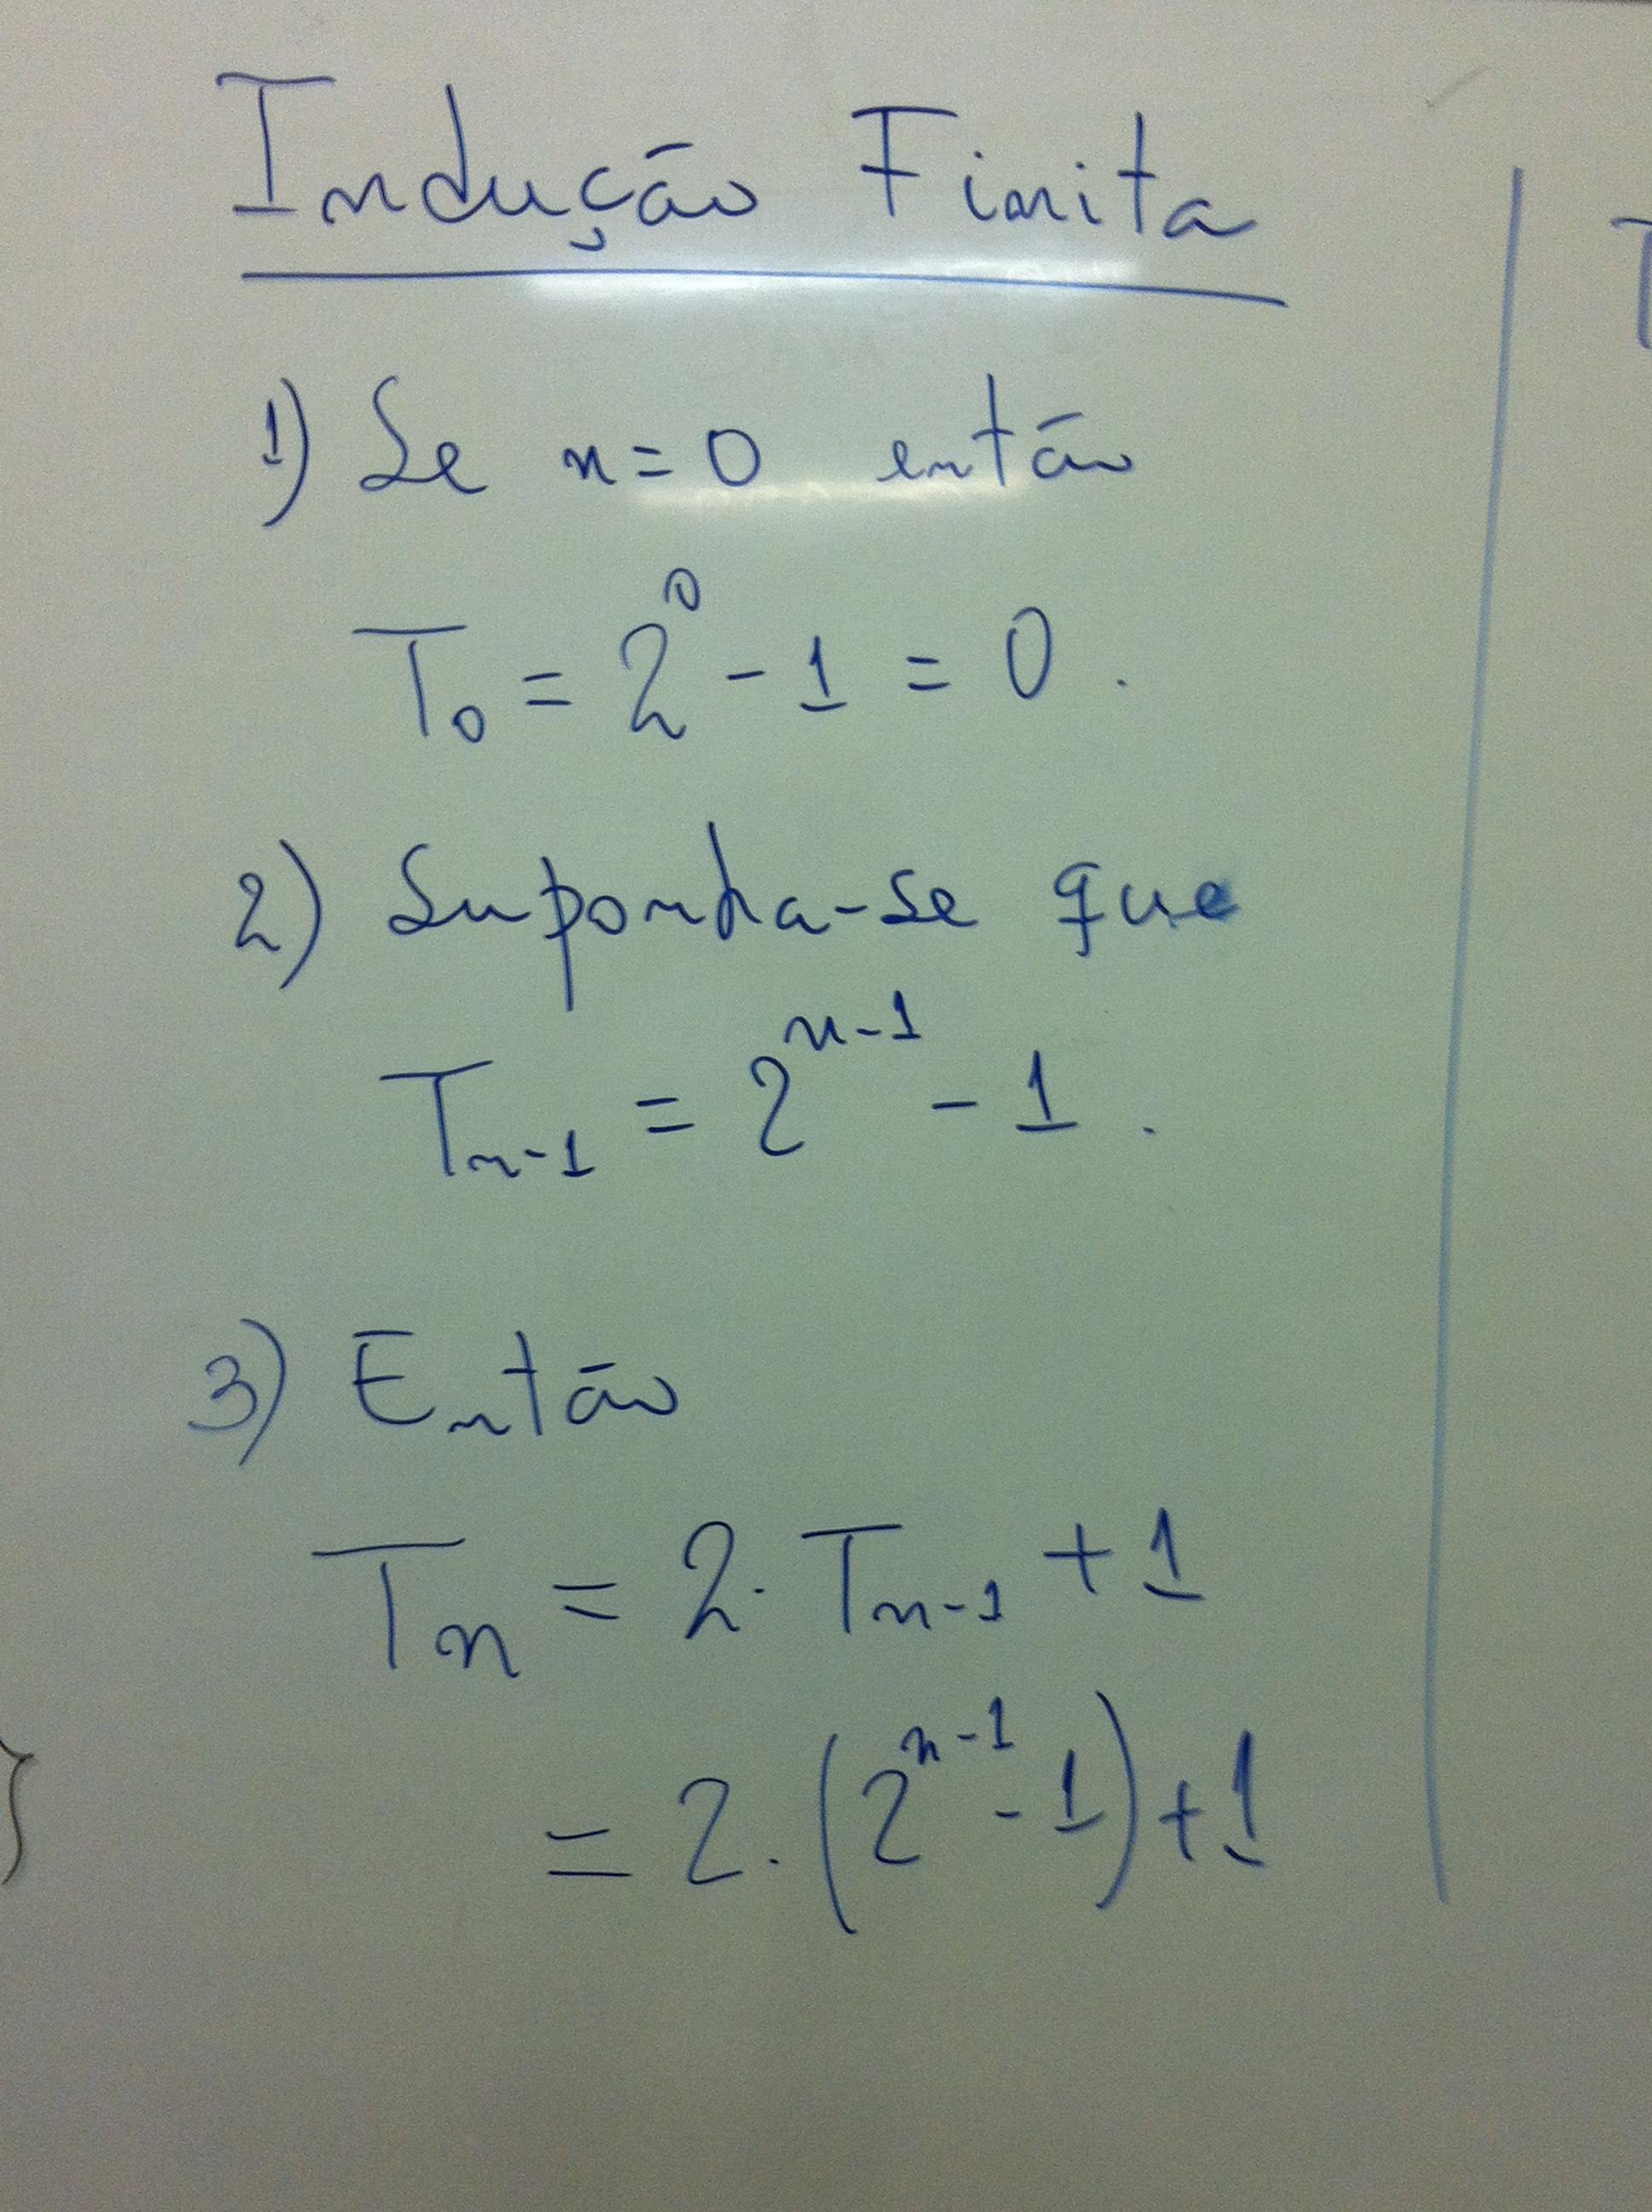 Indução Finita
1) Se n=0 então
T₀ = 2⁰ - 1 = 0.
2) Suponha-se que
Tₙ₋₁ = 2ⁿ⁻¹ - 1.
3) Então
Tₙ = 2. Tₙ₋₁ + 1
= 2. (2ⁿ⁻¹ - 1) + 1